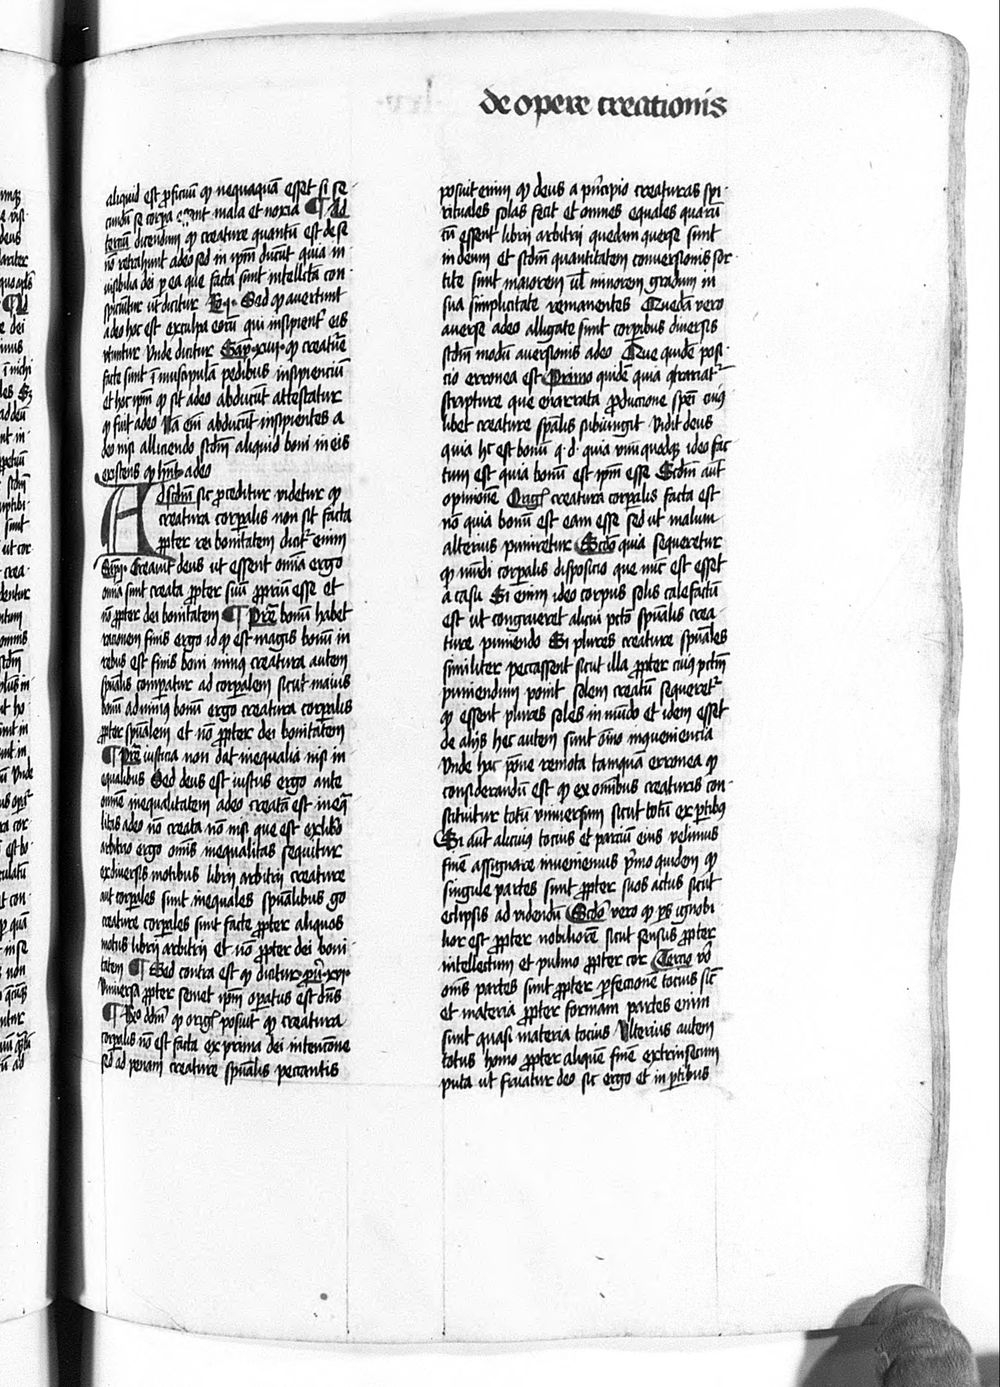 de opere creationis
aliquid est ꝓficuū qꝫ nequaquā esset si se-
cundū se corpa eēnt mala et noxia ¶ Ad
terciū dicendum qꝫ creature quantū est de se
nō retrahunt a deo sed in ipm ducūt quia in
visibilia dei ꝑ ea que facta sunt intellcā con-
spiciūtur ut dicitur Sed qꝫ avertunt
a deo hoc est ex culpa eorū qui insipientr eis
utuntur Unde dicitur Sap xiiii qꝫ creatu͛e
facte sunt ī muscipulā pedibus insipienciū
et hoc ipm qꝫ sic a deo abducūt attestatur
qꝫ sūt a deo Nō em̄ abducūt insipientes a
deo nisi alliciendo scdm̄ aliquid boni in eis
existens qꝫ hn̄t a deo
Ad scdm̄ sic ꝓceditur videtur qꝫ
creatura corꝑalis non sit facta
ꝓpter dei bonitatem dicit͛ enim
Sap i Creavit deus ut essent omīa ergo
omīa sunt creata ꝓpter suū ꝓpriū esse et
nō ꝓpter dei bonitatem ¶ Pretē bonū habet
racionem finis ergo id qꝫ est magis bonū in
rebus est finis boni minꝯ creatura autem
spūalis comꝑatur ad corꝑalem sicut maius
bonū ad minꝯ bonū ergo creatura corꝑalis
ꝓpter spūalem et nō ꝓpter dei bonitatem
¶ Pretē iusticia non dat inequalia nisi in
equalibus Sed deus est iustus ergo ante
omnē inequalitatem a deo creatā est ineqͣ
litas a deo nō creata nō nisi que est ex libͦo
arbitrio ergo omīs inequalitas sequitur
ex diversis motibus librī arbitrii creature
aut corꝑales sunt inequales spūalibus go
creature corꝑales sunt facte ꝓpter aliquos
motus librī arbitrii et nō ꝓpter dei boni-
tatem ¶ Sed contra est qꝫ dicitur pu̅ xvi
Universa ꝓpter semet ipm oꝑatus est dn̄s
¶ Rō dd̄m qꝫ orig posuit qꝫ creatura
corꝑalis nō est facta ex prima dei intencōne
sed ad penam creature spūalis peccantis
posuit enim qꝫ deus a pͥncipio creaturas spi-
rituales solas fecit et omnes equales quarū
cū essent librī arbitrii quedam queꝝse sunt
in deum et scdm̄ quantitatem conversionis sor-
tite sunt maiorem ul̄ minorem gradum in
sua simplicitate remanentes Quedā vero
averse a deo alligate sunt corꝑibus diversis
scdm̄ modū aversionis a deo Que quidē posi-
cio erronea est Primo quidē quia ꝯtrariat͛
scripture que enarrata ꝓductione speī cuiꝯ
libet creature spūalis subiungit Vidit deus
quia hͨ est bonū q d quia vnūquodqꝫ ideo fac
tum est quia bonū est ipm esse Scdm̄ aut̄
opinionē Orig creatura corꝑalis facta est
nō quia bonū est eam esse sed ut malum
alterius puniretur Scdo quia sequeretur
qꝫ mūdi corꝑalis disposicio que nūc est esset
a casu Si enim ideo corpus solis tale factū
est ut congrueret alicui pctō spūalis crea-
ture puniendo Si plures creature spūales
similiter peccassent sicut illa ꝓpter cuiꝯ pctm̄
puniendum ponit solem creatū sequeret͛
qꝫ essent plures soles in mūdo et idem esset
de aliis hec autem sunt oīno inqueniencia
Unde hac pōne remota tamquā erronea qꝫ
considerandū est qꝫ ex omībus creaturis con-
stituitur totū vniversum sicut totū ex ꝑtibꝯ
Si aut̄ alicuiꝯ tocius et parciū eius velimus
finē assignare inveniemus pͥmo quidem qꝫ
singule partes sunt ꝓpter suos actus sicut
eclipsis ad videndū Scdo vero qꝫ ꝑs ignobi
lior est ꝓpter nobiliorē sicut sensus ꝓpter
intellectum et pulmo ꝓpter cor Tercio vͦo
om̄s partes sunt ꝓpter ꝑfectionē tocius sic̄
et materia ꝓpter formam partes enim
sunt quasi materia tocius Ulterius autem
totus homo ꝓpter aliquē finē extrinsecum
puta ut fruatur deo sic ergo et in ꝑtibus